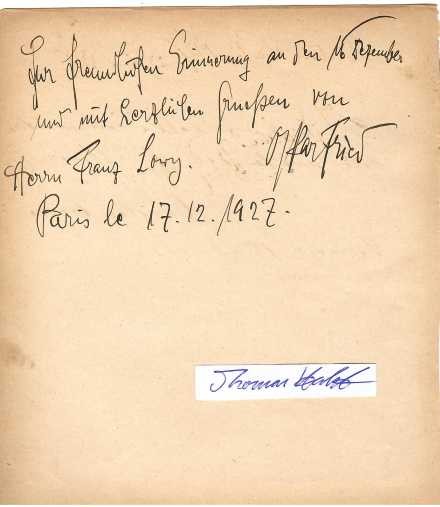 Zur freundlichen Erinnerung an den 16 Dezember
und mit herzlichen Gruessen von
Oskar Fried
Herrn Franz Lowy.
Paris le 17.12.1927.
Thomas